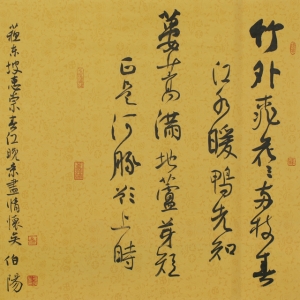 竹外桃花三两枝春
江水暖鸭先知
蒌蒿满地芦芽短
正是河豚欲上时
苏东坡惠崇春江晚景尽情怀矣 伯阳